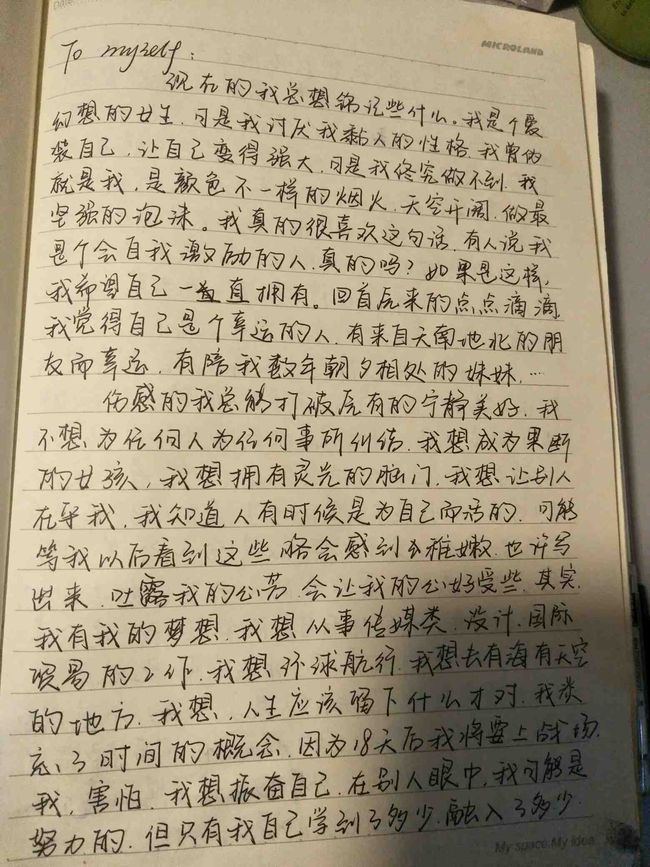 MICROLAND
To myself:
现在的我总想铭记些什么。我是个爱
幻想的女生,可是我讨厌我黏人的性格,我曾伪
装自己,让自己变得强大,可是我终究做不到,我
就是我,是颜色不一样的烟火,天空开阔,做最
坚强的泡沫。我真的很喜欢这句话,有人说我
是个会自我激励的人,真的吗?如果是这样,
我希望自己一直拥有。回首起来的点点滴滴
我觉得自己是个幸运的人,有来自天南地北的朋
友而幸运,有陪我数年朝夕相处的妹妹,…
伤感的我总能打破原有的宁静美好,我
不想为任何人为任何事所纠结,我想成为果断
的女孩,我想拥有灵光的脑门,我想让别人
在乎我,我知道人有时候是为自己而活的,可能
等我以后看到这些將会感到稚嫩,也许写
出来,吐露我的心芳,会让我的心好受些,其实,
我有我的梦想,我想从事传媒类,设计,国际
贸易的工作,我想环球航行,我想去有海有天空
的地方,我想,人生应该留下什么才对,我淡
忘了时间的概念,因为18天后我将要上战场,
我,害怕,我想振奋自己,在别人眼中,我可能是
努力的,但只有我自己学到了多少,融入了多少
My space.My idea